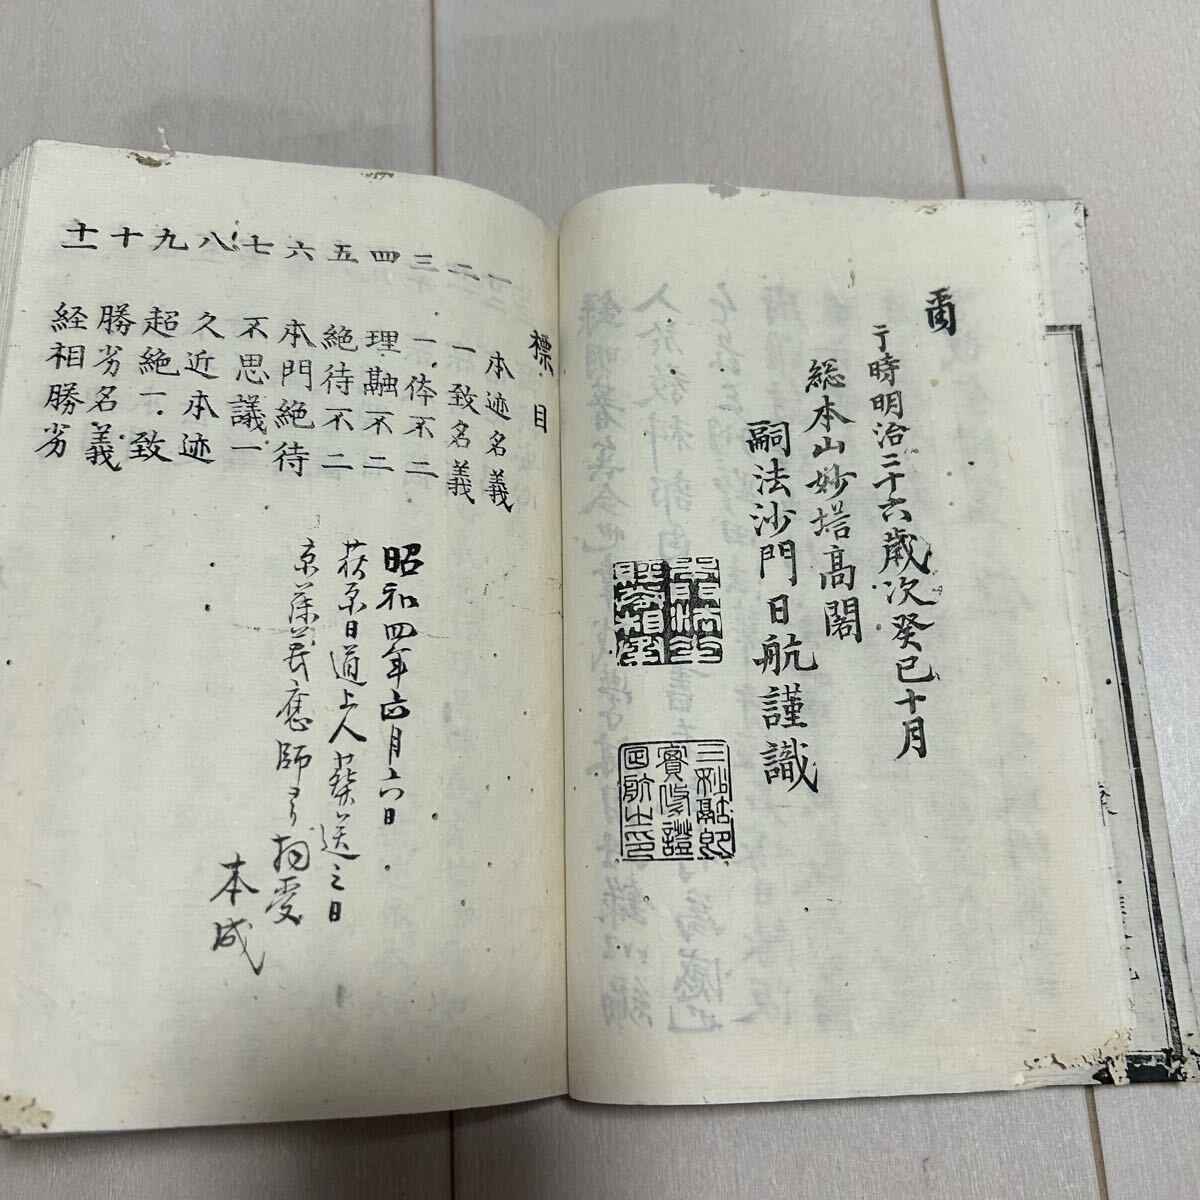 爾
于時明治二十六歳次癸巳十月
総本山妙塔高閣
嗣法沙門日航謹識
三秘融即
實修證
日航之印
標目
一 本迹名義
二 一致名義
三 一体不二
四 理融不二
五 絶待不二
六 本門絶待
七 不思議一
八 久近本迹
九 超絶一致
十 勝劣名義
十一 経相勝劣
昭和四年六月六日
荻原日道上人葬送之日
京藤義應師ヨリ拘受
本成